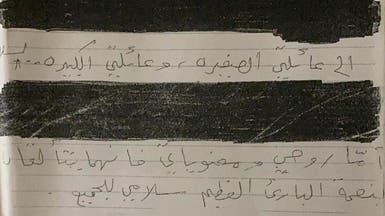 الى عائلتي الصغيره، وعائلتي الكبيره...
أمّا روحي ومعنوياتي فانهما يتألقان
بنعمة البارئ العظيم سلامي للجميع